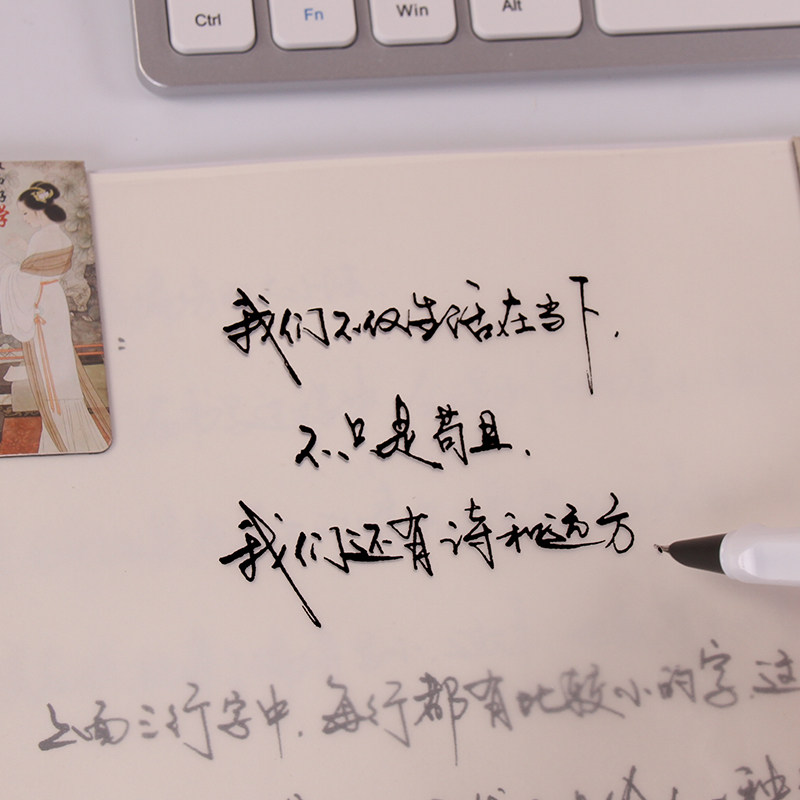 Ctrl Fn Win Alt
我们不仅生活在当下,
不只是苟且,
我们还有诗和远方
上面三行字中,每行都有比较小的字,这
一种